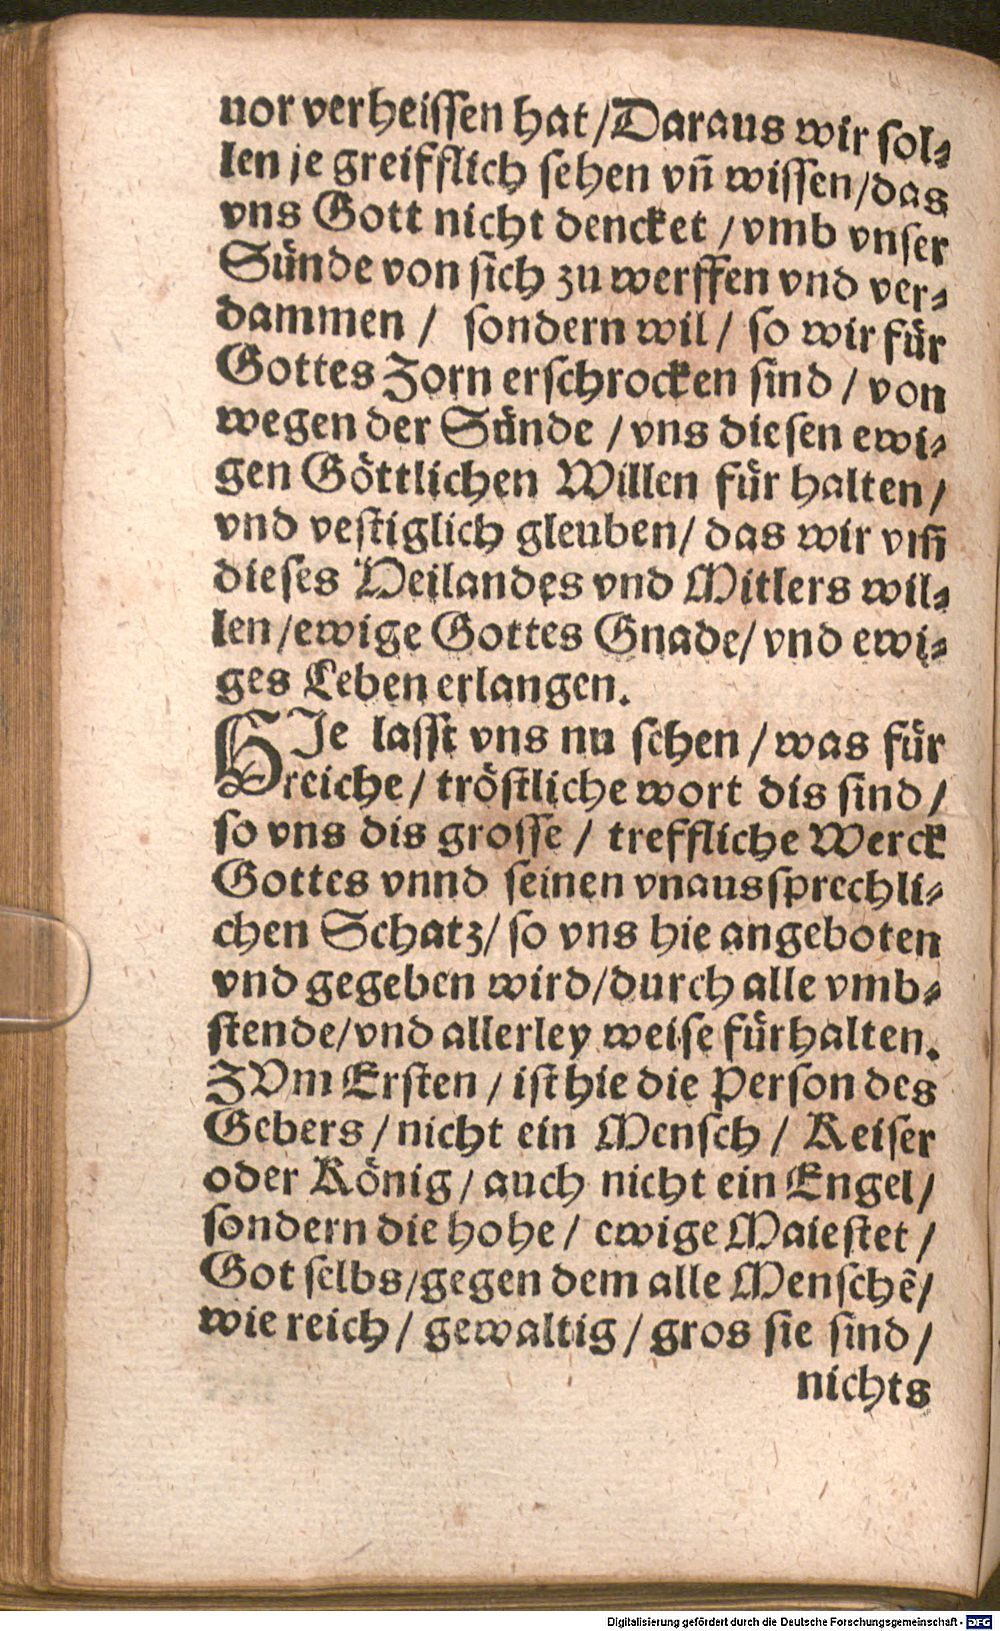 nor verheissen hat /Daraus wir sol⸗
len je greifflich sehen vñ wissen/das
vns Gott nicht dencket /vmb vnser
Sünde von sich zu werffen vnd ver⸗
dammen / sondern wil / so wir für
Gottes Zorn erschrocken sind / von
wegen der Sünde /vns diesen ewi⸗
gen Göttlichen Willen für halten /
vnd vestiglich gleuben/ das wir vm̃
dieses Heilandes vnd Mitlers wil⸗
len /ewige Gottes Gnade/ vnd ewi⸗
ges Leben erlangen.
HJe lasst vns nu sehen / was für
reiche / tröstliche wort dis sind /
so vns dis grosse / treffliche Werck
Gottes vnnd seinen vnaussprechli⸗
chen Schatz/ so vns hie angeboten
vnd gegeben wird/durch alle vmb⸗
stende/vnd allerley weise fürhalten.
ZVm Ersten / ist hie die Person des
Gebers / nicht ein Mensch / Keiser
oder König / auch nicht ein Engel /
sondern die hohe / ewige Maiestet /
Got selbs /gegen dem alle Menschẽ/
wie reich / gewaltig / gros sie sind /
nichts
Digitalisierung gefördert durch die Deutsche Forschungsgemeinschaft - DFG